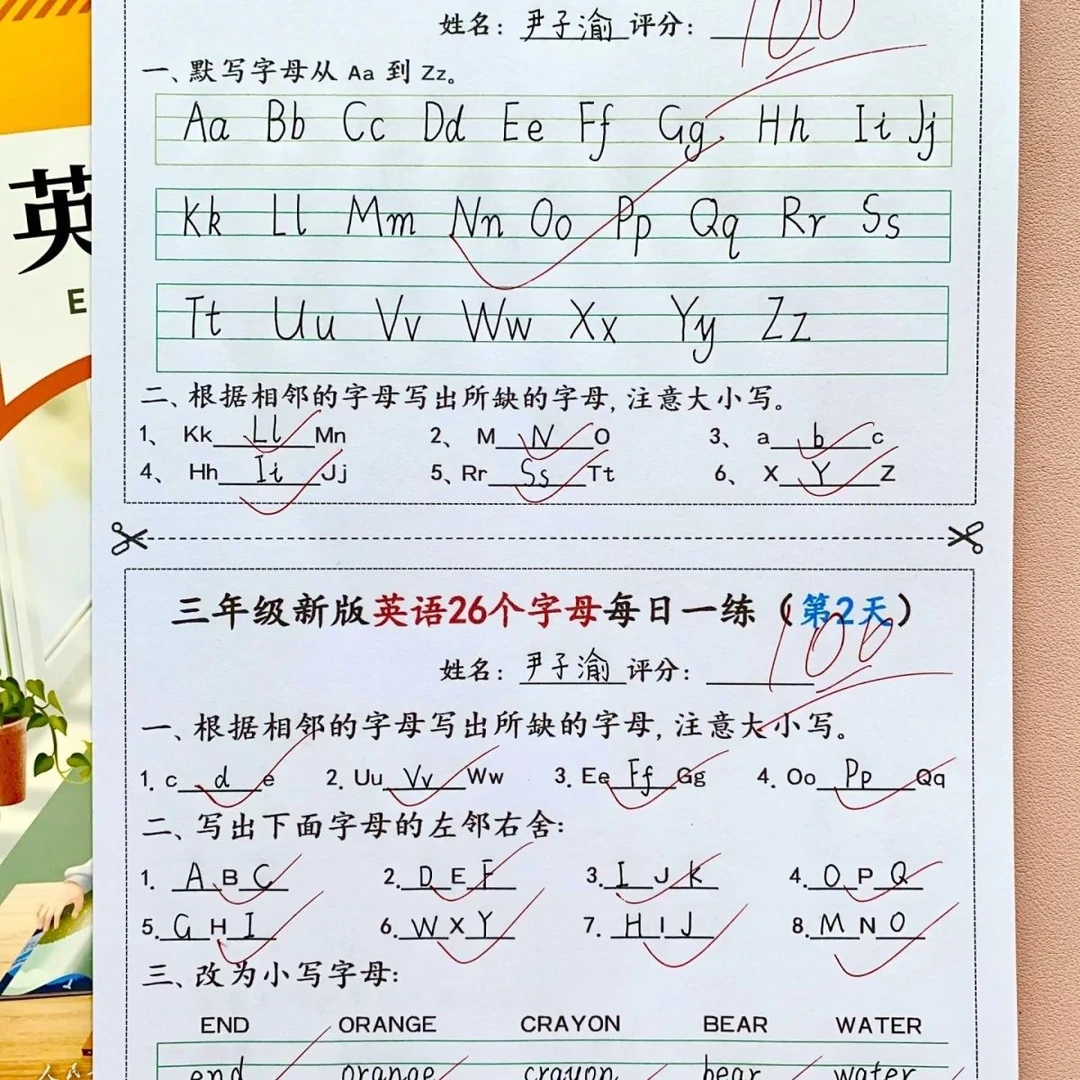 姓名：尹子渝 评分：100
一、默写字母从 Aa 到 Zz。
Aa Bb Cc Dd Ee Ff Gg Hh Ii Jj
Kk Ll Mm Nn Oo Pp Qq Rr Ss
Tt Uu Vv Ww Xx Yy Zz
二、根据相邻的字母写出所缺的字母，注意大小写。
1、 Kk Ll Mn 2、 M N O 3、 a b c
4、 Hh Ii Jj 5、Rr Ss Tt 6、 X Y Z
三年级新版英语26个字母每日一练（第2天）
姓名：尹子渝 评分：100
一、根据相邻的字母写出所缺的字母，注意大小写。
1. c d e 2. Uu Vv Ww 3. Ee Ff Gg 4. Oo Pp Qq
二、写出下面字母的左邻右舍：
1. A B C 2. D E F 3. I J K 4. O P Q
5. G H I 6. W X Y 7. H I J 8. M N O
三、改为小写字母：
END ORANGE CRAYON BEAR WATER
end orange crayon bear water
英
E
人民